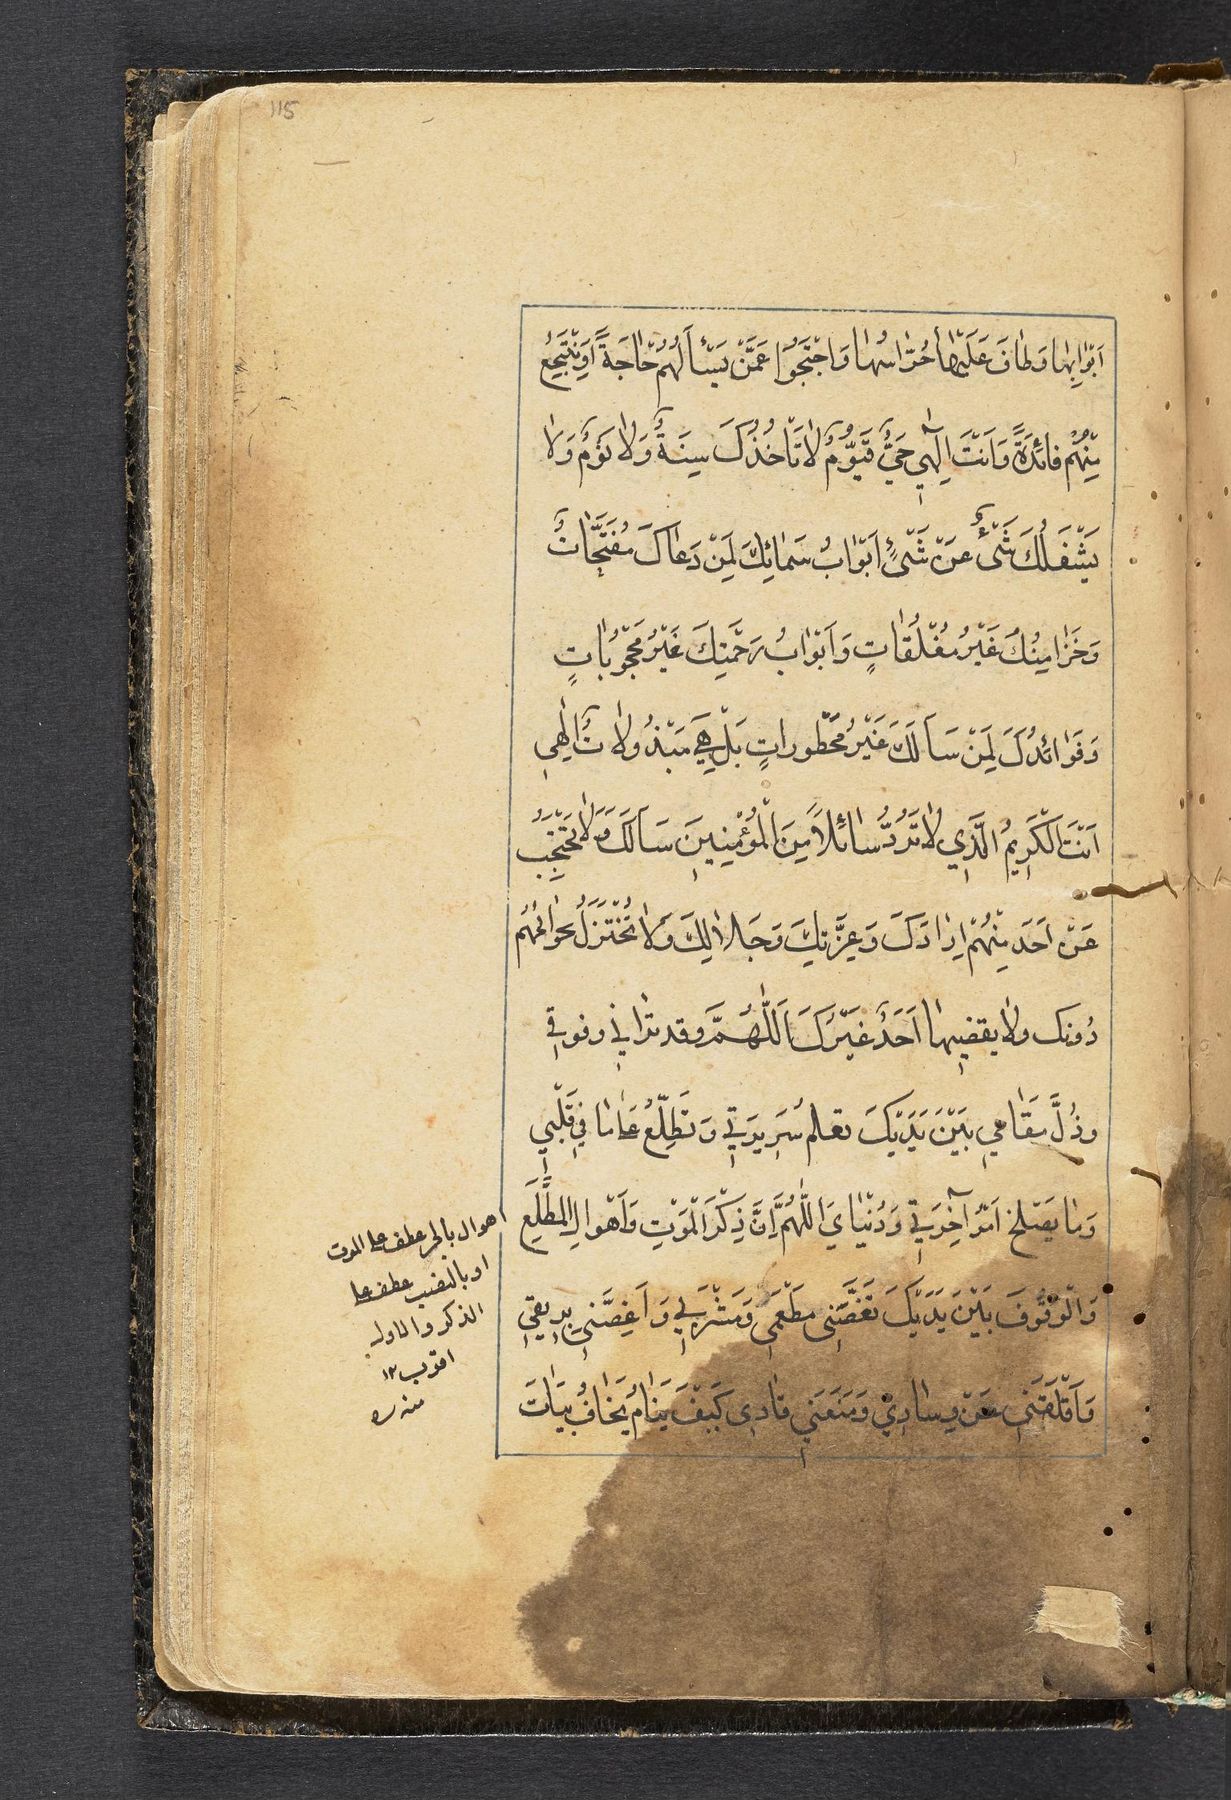 115
اَبْوابِها وَطافَ عَلَيْها حُرّاسُها وَاحْتَجَبُوا عَمَّنْ يَسْأَلُهُمْ حاجَةً اَوْ يَنْتَجِعُ
مِنْهُمْ فائِدَةً وَاَنْتَ اِلٰهي حَيٌّ قَيُّومٌ لا تَأْخُذُكَ سِنَةٌ وَلا نَوْمٌ وَلا
يَشْغَلُكَ شَيْءٌ عَنْ شَيْءٍ اَبْوابُ سَمائِكَ لِمَنْ دَعاكَ مُفَتَّحاتٌ
وَخَزائِنُكَ غَيْرُ مُغْلَقاتٍ وَاَبْوابُ رَحْمَتِكَ غَيْرُ مَحْجُوباتٍ
وَفَوائِدُكَ لِمَنْ سَأَلَكَ غَيْرُ مَحْظُوراتٍ بَلْ هِيَ مَبْذُولاتٌ اِلٰهي
اَنْتَ الْكَرِيمُ الَّذِي لا تَرُدُّ سائِلاً مِنَ الْمُؤْمِنِينَ سَأَلَكَ وَلا تَحْتَجِبُ
عَنْ اَحَدٍ مِنْهُمْ اَرادَكَ وَعِزَّتِكَ وَجَلالِكَ وَلا تُخْتَزَلُ حَوائِجُهُمْ
دُونَكَ ولا يقضيها اَحَدٌ غَيْرُكَ اَللّٰهُمَّ وقد تراني ووقوفي
وذُلَّ مَقامي بَيْنَ يَدَيْكَ تعلم سَرِيرَتي وَتَطَّلِعُ عَلى ما في قَلْبي
وَما يَصْلح اَمْرَ آخِرَتي وَدُنْيايَ اَللّٰهُمَّ اِنَّ ذِكْرَ الْمَوْتِ وَاَهْوالِ الْمُطَّلَعِ
وَالْوُقُوفَ بَيْنَ يَدَيْكَ نَغَّصَني مَطْعَمي وَمَشْرَبي وَاَغَصَّني بِرِيقي
وَاَقْلَقَني عَنْ وِسادي وَمَنَعَني رُقادي كَيْفَ يَنامُ مَنْ يَخافُ بَياتَ
اهوال بالجر عطف على الموت
او بالنصب عطف على
الذكر والاول
اقرب ١٢
منه